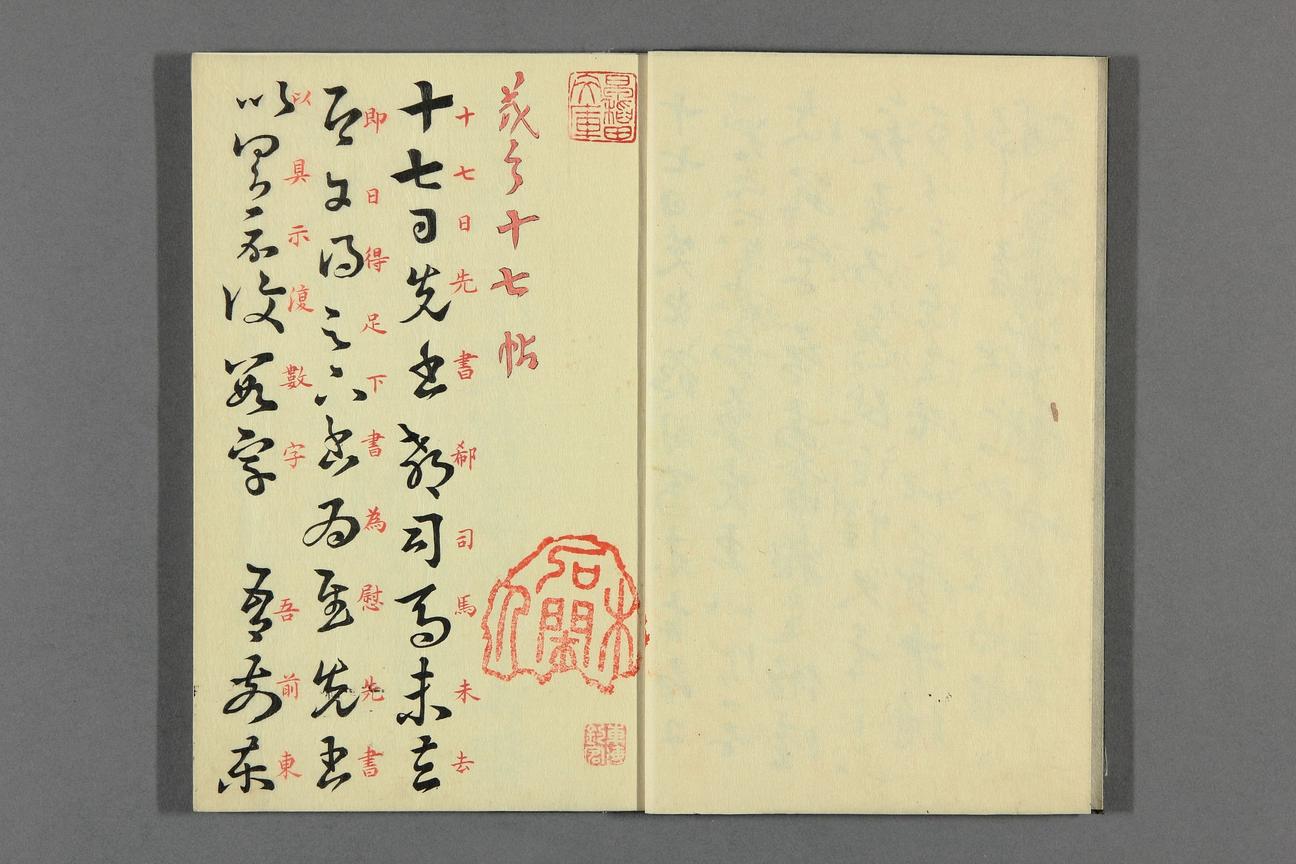 羲之十七帖
十七日先書郗司馬未去
十七日先書郗司馬未去
即日得足下書為慰先書
即日得足下書為慰先書
以具示復數字 吾前東
以具示復數字 吾前東